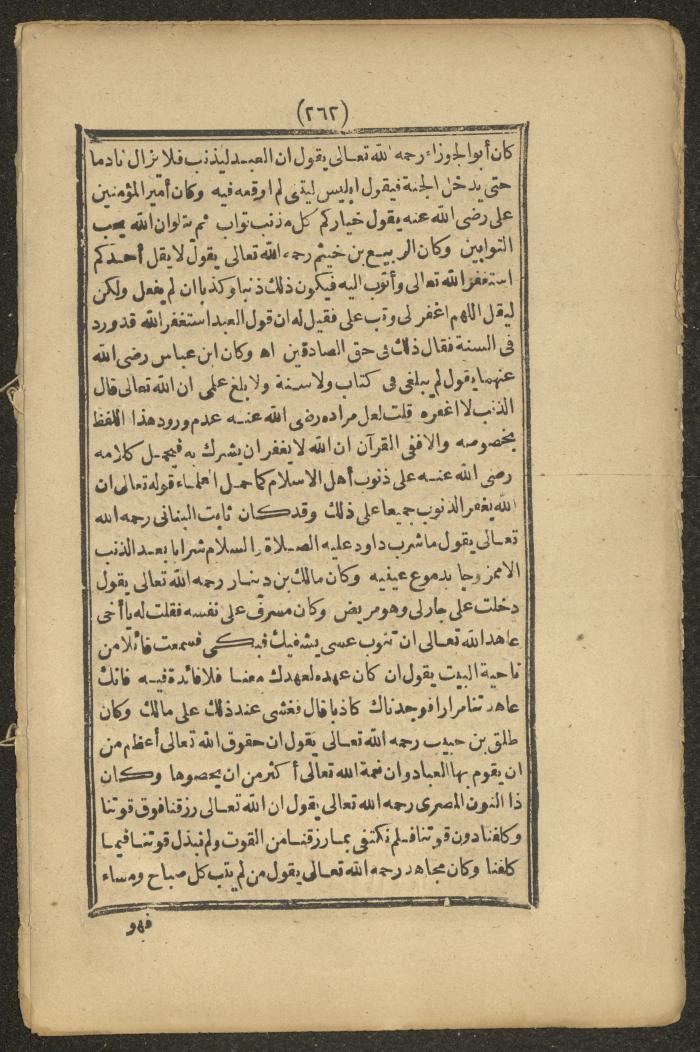 (٢٦٢)
كان أبو الجوزاء رحمه الله تعالى يقول ان العبد ليذنب فلا يزال نادما
حتى يدخل الجنة فيقول ابليس ليتنى لم اوقعه فيه وكان أمير المؤمنين
على رضى الله عنه يقول خياركم كل مذنب تواب ثم يتلو ان الله يحب
التوابين وكان الربيع بن خيثم رحمه الله تعالى يقول لا يقل أحدكم
استغفر الله تعالى وأتوب اليه فيكون ذلك ذنبا وكذبا ان لم يفعل ولكن
ليقل اللهم اغفر لى وتب على فقيل له ان قول العبد استغفر الله قد ورد
فى السنة فقال ذلك فى حق الصادقين اه وكان ابن عباس رضى الله
عنهما يقول لم يبلغنى فى كتاب ولا سنة ولا بلغ علمى ان الله تعالى قال
الذنب لا اغفره قلت لعل مراده رضى الله عنه عدم ورود هذا اللفظ
بخصوصه والا ففى القرآن ان الله لا يغفر ان يشرك به فيحمل كلامه
رضى الله عنه على ذنوب أهل الاسلام كما حمل العلماء قوله تعالى ان
الله يغفر الذنوب جميعا على ذلك وقد كان ثابت البنانى رحمه الله
تعالى يقول ما شرب داود عليه الصلاة والسلام شرابا بعد الذنب
الا ممزوجا بدموع عينيه وكان مالك بن دينار رحمه الله تعالى يقول
دخلت على جار لى وهو مريض وكان مسرف على نفسه فقلت له يا أخى
عاهد الله تعالى ان تتوب عسى يشفيك فبكى فسمعت قائلا من
ناحية البيت يقول ان كان عهده لعهدك معنا فلا فائدة فيه فانك
عاهدتنا مرارا فوجدناك كاذبا قال فغشى عند ذلك على مالك وكان
طلق بن حبيب رحمه الله تعالى يقول ان حقوق الله تعالى أعظم من
ان يقوم بها العباد وان نعمة الله تعالى أكثر من ان يحصوها وكان
ذا النون المصرى رحمه الله تعالى يقول ان الله تعالى رزقنا فوق قوتنا
وكلفنا دون قوتنا فلم نكتفى بما رزقنا من القوت ولم نبذل قوتنا فيما
كلفنا وكان مجاهد رحمه الله تعالى يقول من لم يتب كل صباح ومساء
فهو